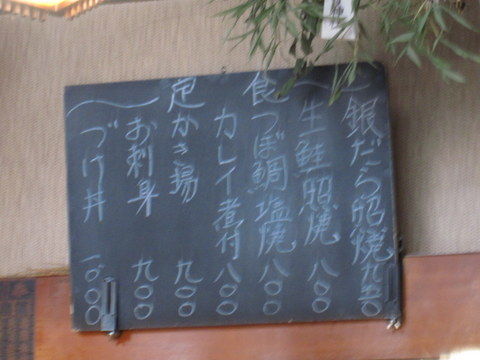 銀だら照焼 九五〇
生鮭照焼 八〇〇
つぼ鯛塩焼 八〇〇
カレイ煮付 八〇〇
かき揚 九〇〇
お刺身 九〇〇
づけ丼 一〇〇〇
定食